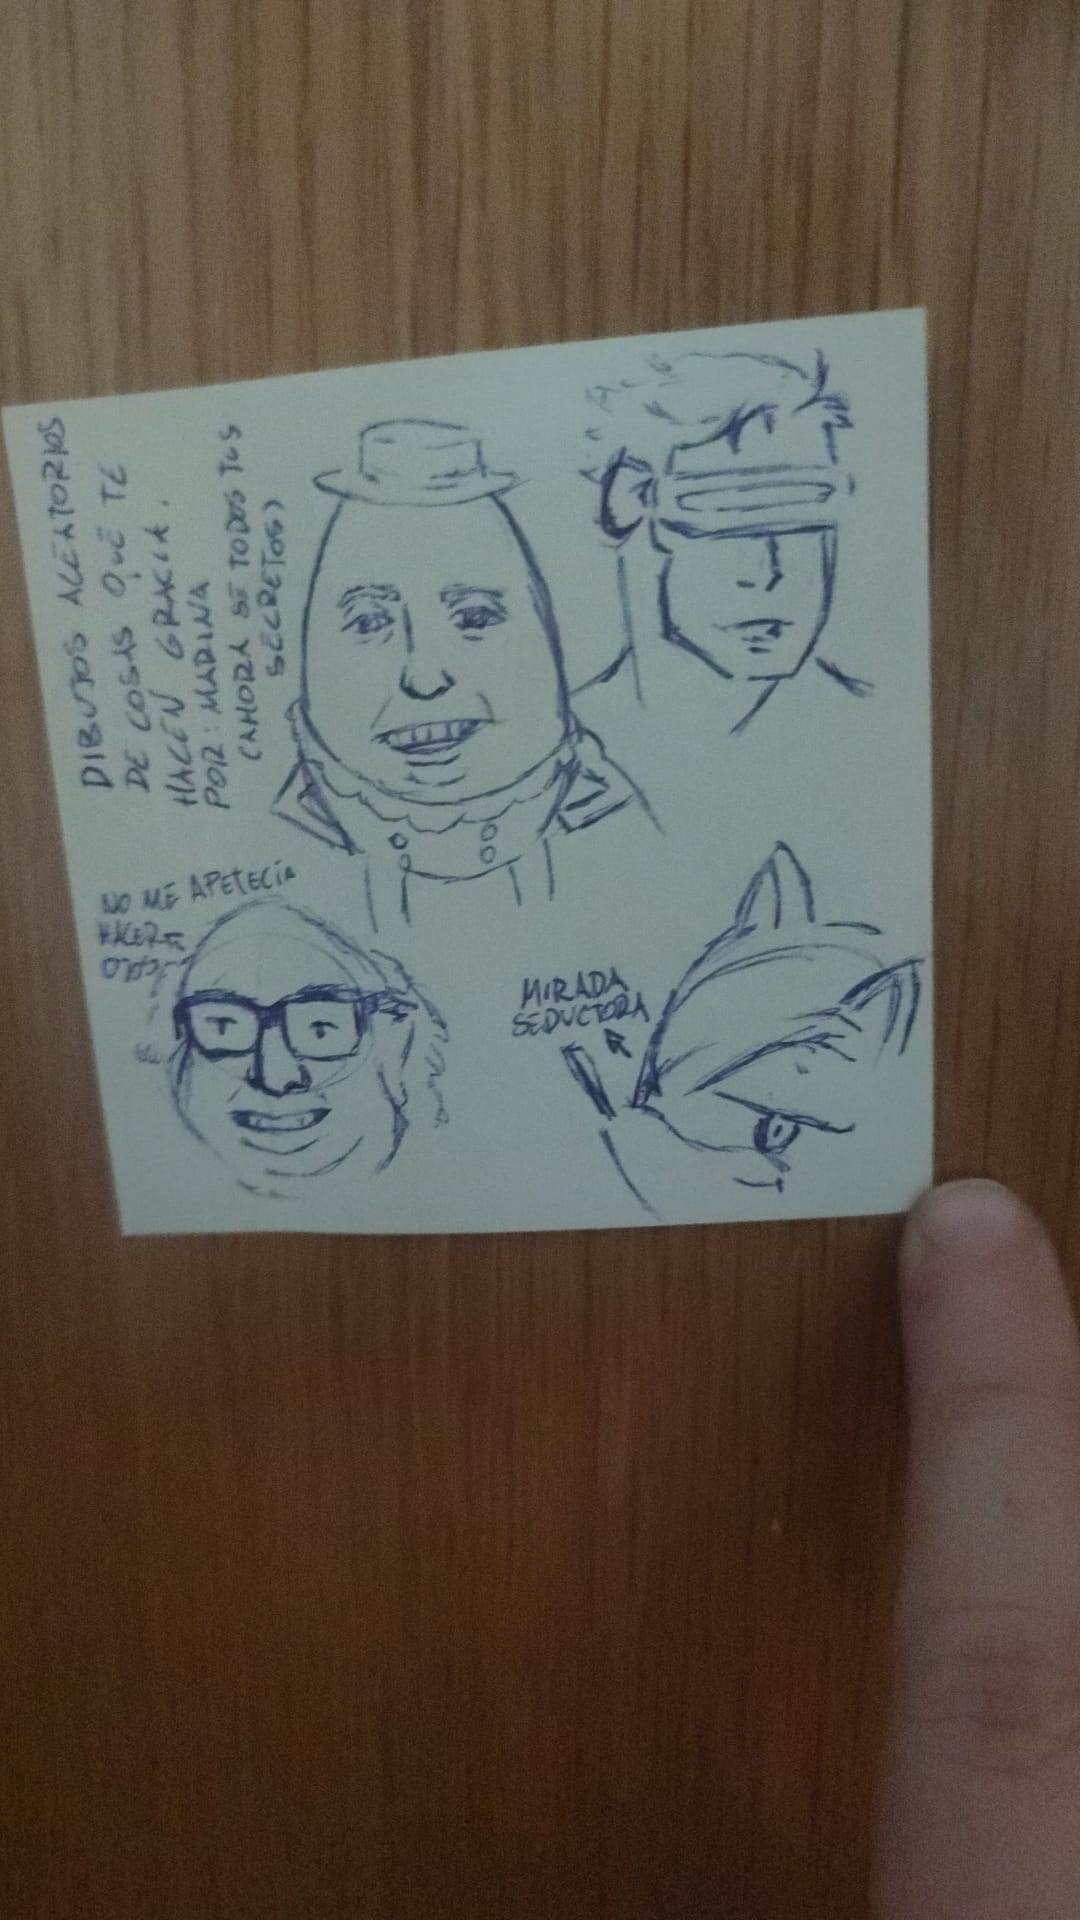 DIBUJOS ALEATORIOS
DE COSAS QUE TE
HACEN GRACIA.
POR: MARINA
(AHORA SÉ TODOS TUS
SECRETOS)
NO ME APETECÍA
HACERTE
OJOS
MIRADA
SEDUCTORA